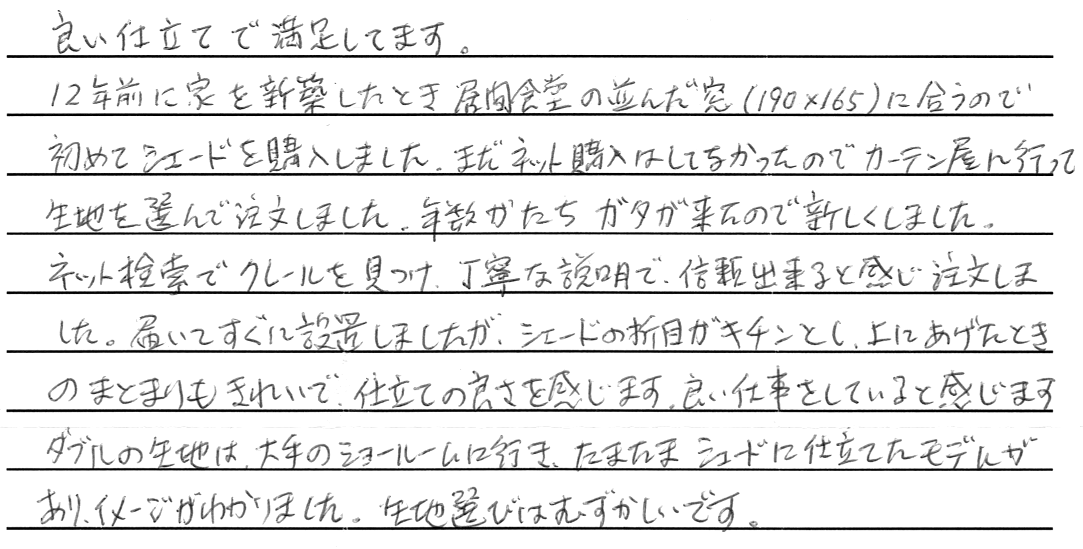 良い仕立てで満足してます。
12年前に家を新築したとき居間食堂の並んだ窓(190×165)に合うので
初めてシェードを購入しました。まだネット購入はしてなかったのでカーテン屋に行って
生地を選んで注文しました。年数がたちガタが来たので新しくしました。
ネット検索でクレールを見つけ、丁寧な説明で、信頼出来ると感じ注文しま
した。届いてすぐに設置しましたが、シェードの折目がキチンとし、上にあげたとき
のまとまりもきれいで、仕立ての良さを感じます。良い仕事をしていると感じます
ダブルの生地は、大手のショールームに行き、たまたまシェードに仕立てたモデルが
あり、イメージがわかりました。生地選びはむずかしいです。